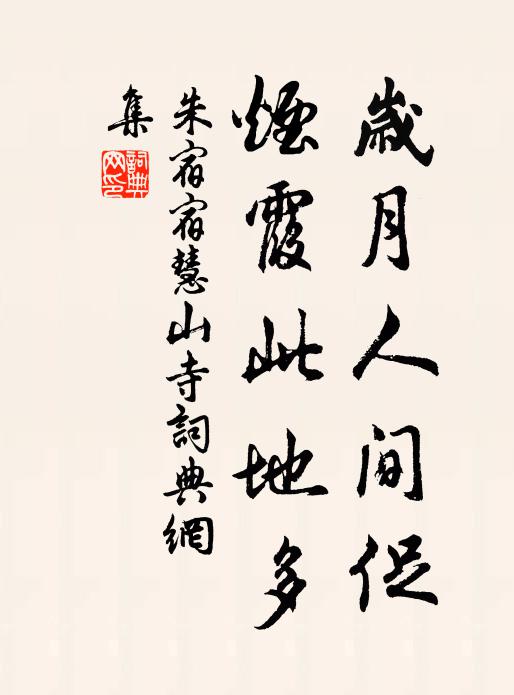 歲月人間促
煙霞此地多
朱宿宿慧山寺詞典網
集
詞典网印